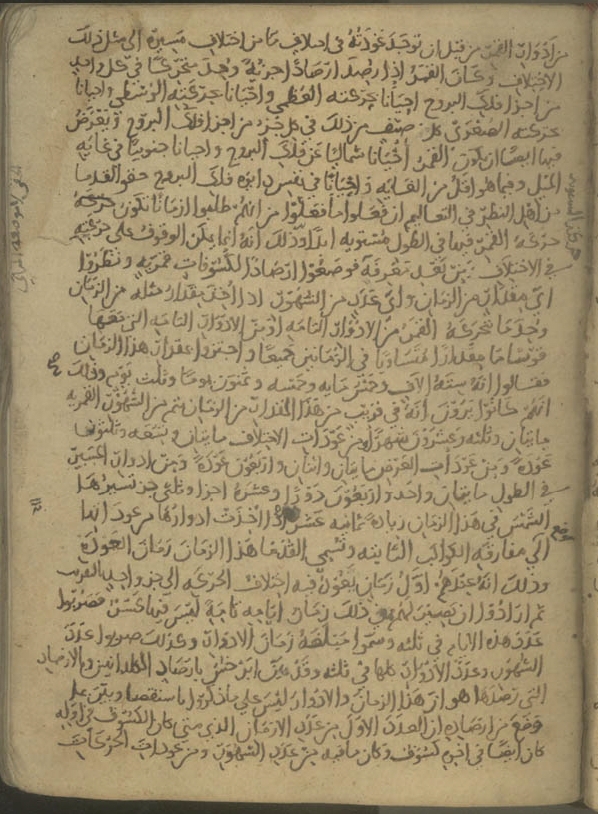 من ادوار القمر من قبل ان توجد عودته في اختلاف ما من اختلاف مسيره الى مثل ذلك
الاختلاف وكان القمر اذا رصد ارصادا جزئية وجد متحركا في كل واحد
من اجزا فلك البروج احيانا حركته العظمى واحيانا حركته الوسطى واحيانا
حركته الصغرى كل صنف من ذلك في كل جزء من اجزا فلك البروج ويعرض
فيها ايضا ان يكون القمر احيانا شماليا عن فلك البروج واحيانا جنوبيا في غايه
الميل وفيما هو اقل من الغايه واحيانا في نفس دايره فلك البروج حقو القدما
من اهل النظر في التعاليم ان فعلوا ما فعلوا من انهم طلبوا ازمانا تكون حركه
حركه القمر فيها في الطول مستويه ابدا وذلك انه انما يمكن الوقوف على حركته
في الاختلاف فوضعوا ارصادا لكسوفات قمريه ونظروا
اى مقدار من الزمان واى عدد من الشهور اذا اخذ مقدار مثله من الزمان
وجد ما تحركه القمر من الادوار التامه او من الادوار التامه التي معها
قوسا ما مقدارا متساويا في الزمانين جميعا
فقالوا انه سته الاف وخمس مايه وخمسه وثمنون يوما وثلث يوم وذلك
انهم كانوا يرون انه في قريب من هذا المقدار من الزمان يتم من الشهور القمريه
مايتان وثلثه وعشرون شهرا ومن عودات الاختلاف مايتان وتسعه وثلثون
عودة ومن عودات العرض مايتان واثنان واربعون عودة ومن ادوار المسير
في الطول مايتان واحد واربعون دورا وعشره اجزا وثلثي جز تسيرها
الشمس في هذا الزمان زياده على ثمانيه عشر اذا اخذت ادوارها من عودتها
الى مفارقه الكواكب الثابته وتسمي القدما هذا الزمان زمان العودة
وذلك انه عندهم اول زمان يعود فيه اختلاف الحركه الى جز واحد بالتقريب
ثم ارادوا ان يصير لهم في ذلك زمان ايامه تامة ليس فيها كسر فضربوا
عدد هذه الايام في ثلثه وسموا مبلغه زمان الادوار وكذلك ضربوا عدد
الشهور وعدد الادوار كلها في ثلثه وقد بين ابرخس بارصاد الكلدانيين والارصاد
التي رصدها هو ان هذا الزمان والادوار ليس على ما ذكروا باستقصا وبين على
وضع من ارصاده ان العدد الاول من عدد الازمان الذي متى كان الكسوف في اوله
كان ايضا في اخره كسوف وكان ما فيه من عدد الشهور ومن عودات الحركات